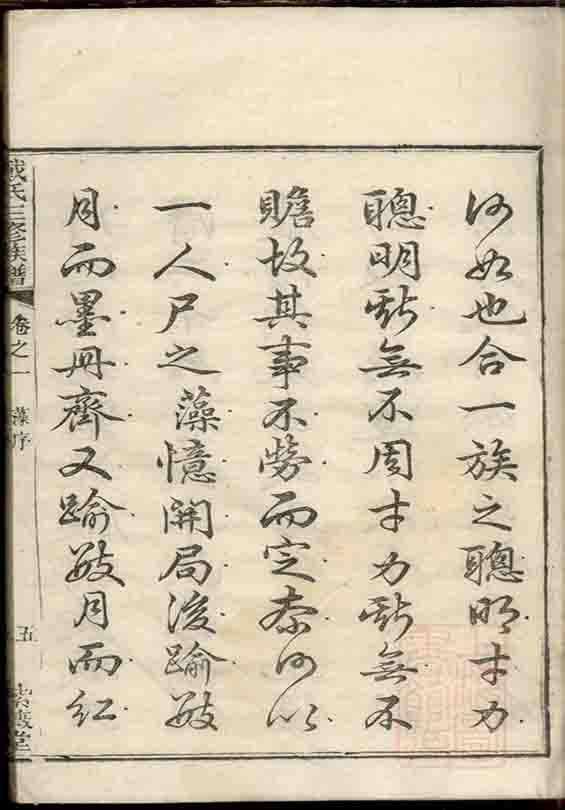 何如也合一族之聰明才力
聰明斯無不周才力斯無不
贍故其事不勞而定奈何以
一人尸之藻憶開局後踰數
月而墨冊齊又踰數月而紅
戴氏三修族譜
卷之一
藻序
五
紫霞堂